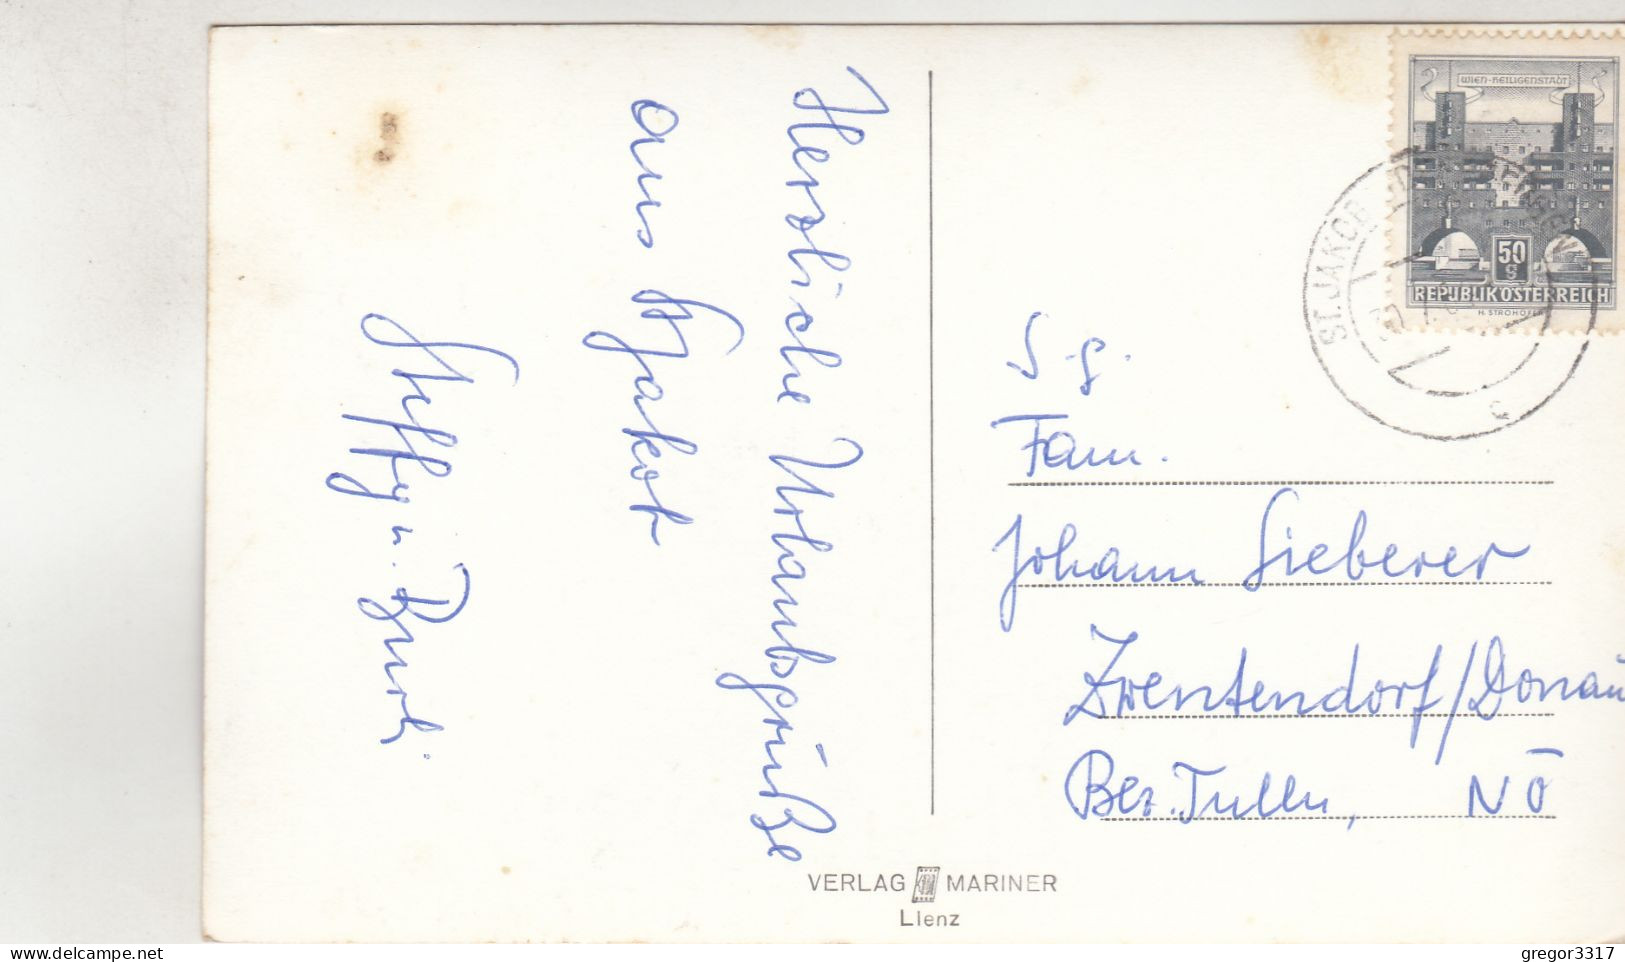 Herzliche Urlaubsgrüße
aus St. Jakob
Steffy u. Burli
WIEN-HEILIGENSTADT
50
g
REPUBLIK ÖSTERREICH
H. STROHOFER
ST. JAKOB
c
S. g.
Fam.
Johann Sieberer
Zwentendorf/Donau
Bez. Tulln, NÖ
VERLAG MARINER
Lienz
delcampe.net
gregor3317